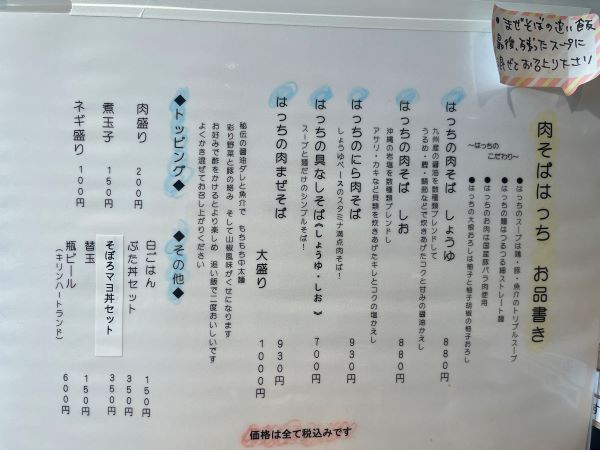 肉そばはっち　お品書き
〜はっちの
こだわり〜
●はっちのスープは鶏・豚・魚介のトリプルスープ
●はっちの麺はつるつる細ストレート麺
●はっちのお肉は国産豚バラ肉使用
●はっちの大根おろしは柚子と柚子胡椒の柚子おろし
はっちの肉そば　しょうゆ　８８０円
九州産の醤油を数種類ブレンドして
うるめ・鰹・鯖節などで炊きあげたコクと甘みの醤油かえし
はっちの肉そば　しお　８８０円
沖縄の岩塩を数種類ブレンドし
アサリ・カキなど貝類を炊きあげたキレとコクの塩かえし
はっちのにら肉そば　９３０円
しょうゆベースのスタミナ満点肉そば！
はっちの具なしそば《しょうゆ・しお》　７００円
スープと麺だけのシンプルそば！
はっちの肉まぜそば　９３０円
大盛り　１０００円
秘伝の醤油ダレと魚介で　もちもち中太麺
彩り野菜と豚の絡み　そして山椒風味がくせになります
お好みで酢をかけるとより楽しめ　追い飯で二度おいしいです
よくかき混ぜてお召し上がりください
◆トッピング◆
肉盛り　２００円
煮玉子　１５０円
ネギ盛り　１００円
◆その他◆
白ごはん　１５０円
ぶた丼セット　３５０円
そぼろマヨ丼セット　３５０円
替玉　１５０円
瓶ビール　６００円
（キリンハートランド）
価格は全て税込みです
・まぜそばの追い飯
最後、残ったスープに